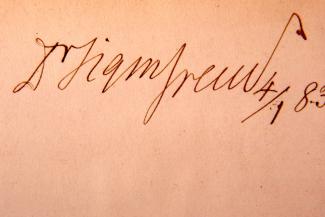 Dr Sigm Freud 4/1 83